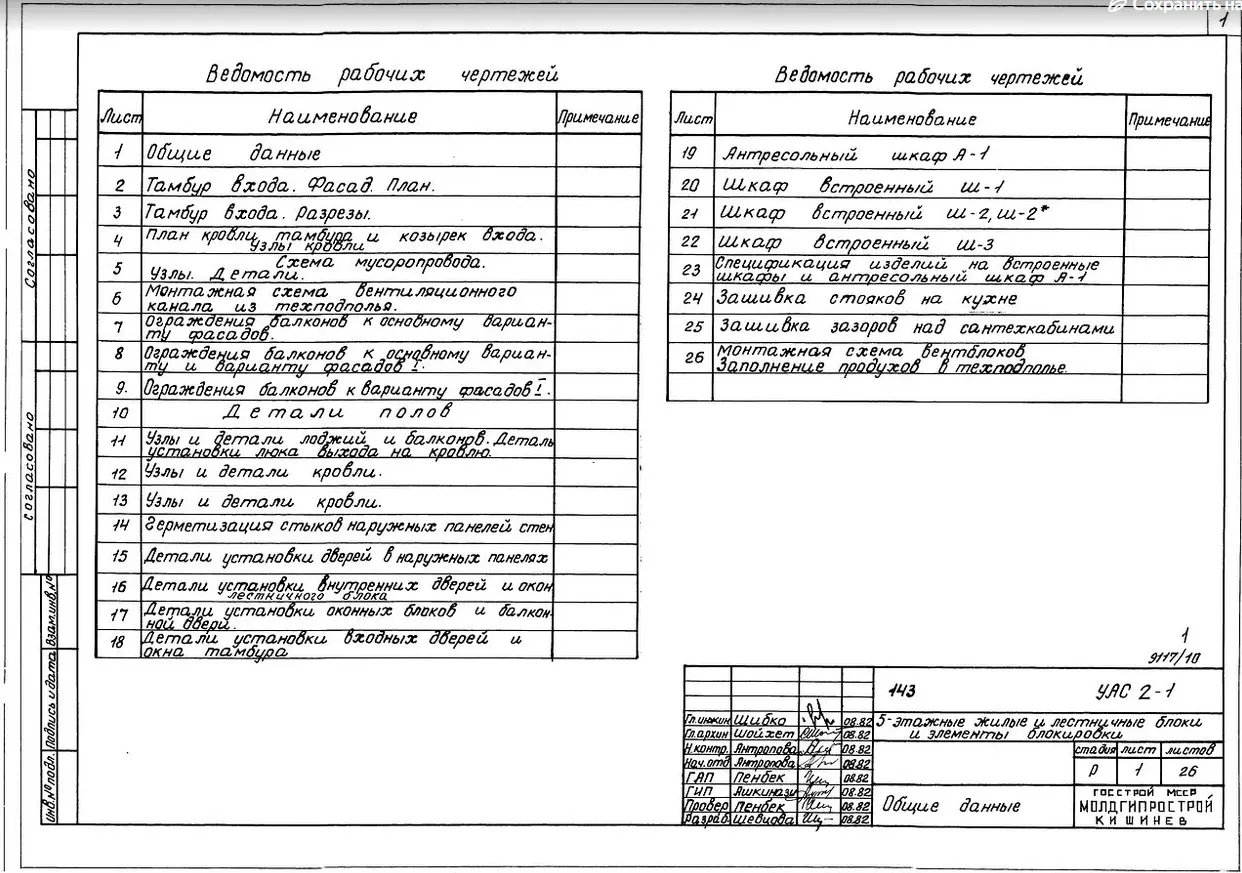 Сохранить на
1
Ведомость рабочих чертежей
Лист Наименование Примечание
1 Общие данные
2 Тамбур входа. Фасад. План.
3 Тамбур входа. Разрезы.
4 План кровли тамбура и козырек входа.
Узлы кровли
5 Схема мусоропровода.
Узлы. Детали.
6 Монтажная схема вентиляционного
канала из техподполья.
7 Ограждения балконов к основному вариан-
ту фасадов.
8 Ограждения балконов к основному вариан-
ту и варианту фасадов I.
9. Ограждения балконов к варианту фасадов I.
10 Детали полов
11 Узлы и детали лоджий и балконов. Деталь
установки люка выхода на кровлю.
12 Узлы и детали кровли.
13 Узлы и детали кровли.
14 Герметизация стыков наружных панелей стен
15 Детали установки дверей в наружных панелях
16 Детали установки внутренних дверей и окон
лестничного блока
17 Детали установки оконных блоков и балкон-
ной двери.
18 Детали установки входных дверей и
окна тамбура
Ведомость рабочих чертежей
Лист Наименование Примечание
19 Антресольный шкаф А-1
20 Шкаф встроенный Ш-1
21 Шкаф встроенный Ш-2, Ш-2*
22 Шкаф встроенный Ш-3
23 Спецификация изделий на встроенные
шкафы и антресольный шкаф А-1
24 Зашивка стояков на кухне
25 Зашивка зазоров над сантехкабинами
26 Монтажная схема вентблоков
Заполнение продухов в техподполье.
Согласовано
согласовано
Инв.№ подл. Подпись и дата Взам.инв.№
1
9117/10
143 УАС 2-1
5-этажные жилые и лестничные блоки
и элементы блокировки
стадия лист листов
Р 1 26
Общие данные
Госстрой МССР
МОЛДГИПРОСТРОЙ
КИШИНЕВ
Гл.инжин Шибко 08.82
Гл.архин Шойхет 08.82
Н.контр. Антропова 08.82
Нач.отд Антропова 08.82
ГАП Пенбек 08.82
ГИП Яшкинази 08.82
Провер Пенбек 08.82
Разраб. Шевцова 08.82